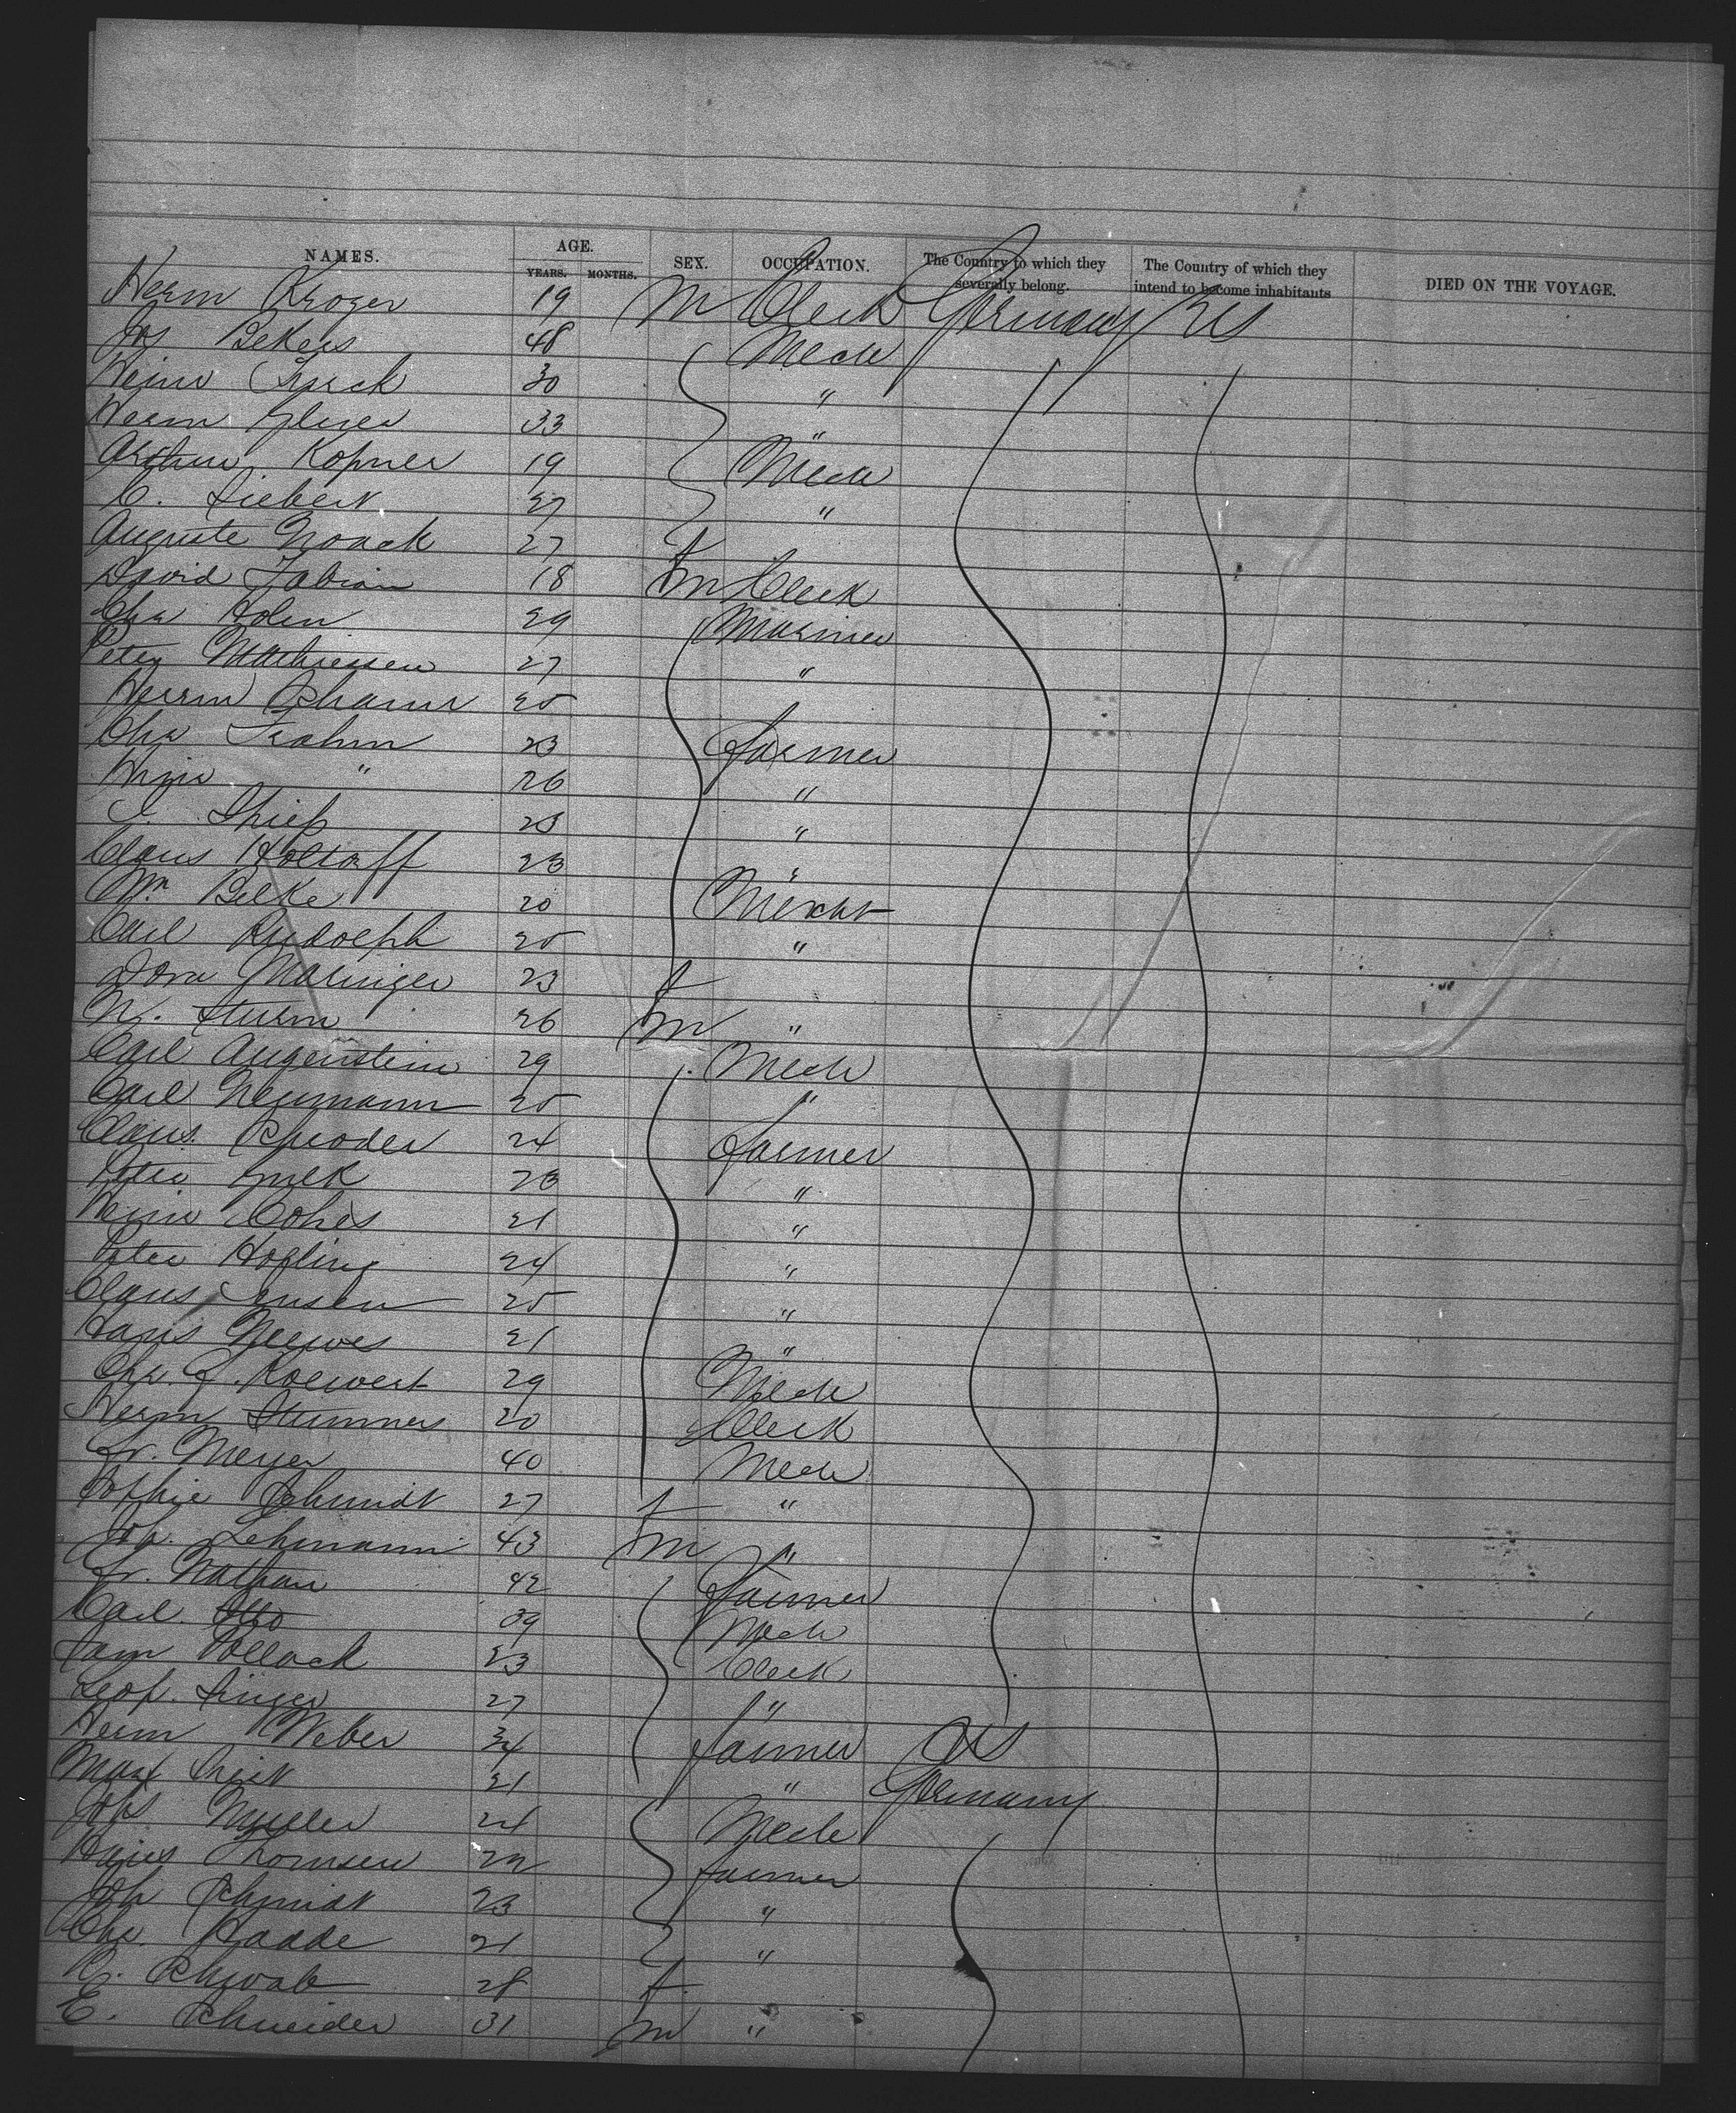 NAMES. AGE. YEARS. MONTHS. SEX. OCCUPATION. The Country to which they severally belong. The Country of which they intend to become inhabitants DIED ON THE VOYAGE.
Herm Kroger 19 M Clerk Germany US
Jos Bekers 48 Mech
Heinr 30 "
Herm 33 "
Arthur Kopner 19 Mech
C. Siebert 27 "
Auguste Noack 27 f
David Fabian 18 m Clerk
Chr Holm 29 Mariner
Peter Mathiessen 27 "
Herm 25 "
Chr Frahm 23 Farmer
" 26 "
J. Thiess 23 "
Claus Holtorff 23 "
Wm. Bilke 20 Mercht
Carl Rudolph 25 "
Dora Maringer 23 f
N. Sturm 26 m "
Carl Augenstein 29 Mech
Carl Neumann 25 "
Claus Schroder 24 Farmer
Peter 23 "
Heinr Cohrs 21 "
Peter Hofling 24 "
Claus Jensen 25 "
Hans Neewes 21 "
Chr. J. Roewert 29 Mech
Herm Stummers 20 Clerk
Fr. Meyer 40 Mech
Sophie Schmidt 27 f "
Joh. Lehmann 43 m "
Fr. Nathan 42 Farmer
Carl Otto 39 Mech
Sam Pollack 23 Clerk
Leop. Singer 27 "
Herm Weber 34 Farmer US
Max 21 " Germany
Johs Muller 24 Mech
Hans Thomsen 22 Farmer
Joh Schmidt 23 "
Chr. Radde 21 "
R. Schwab 28 f
E. Schneider 31 m "